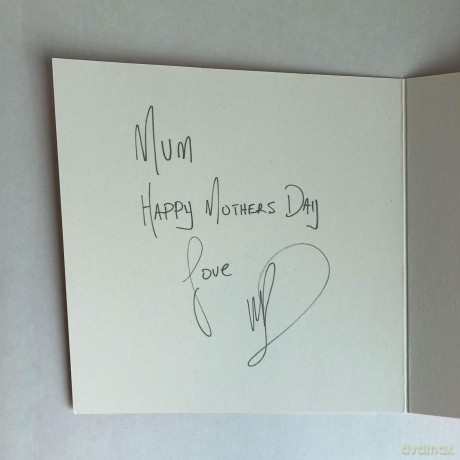 Mum
Happy Mothers Day
Love
avamax